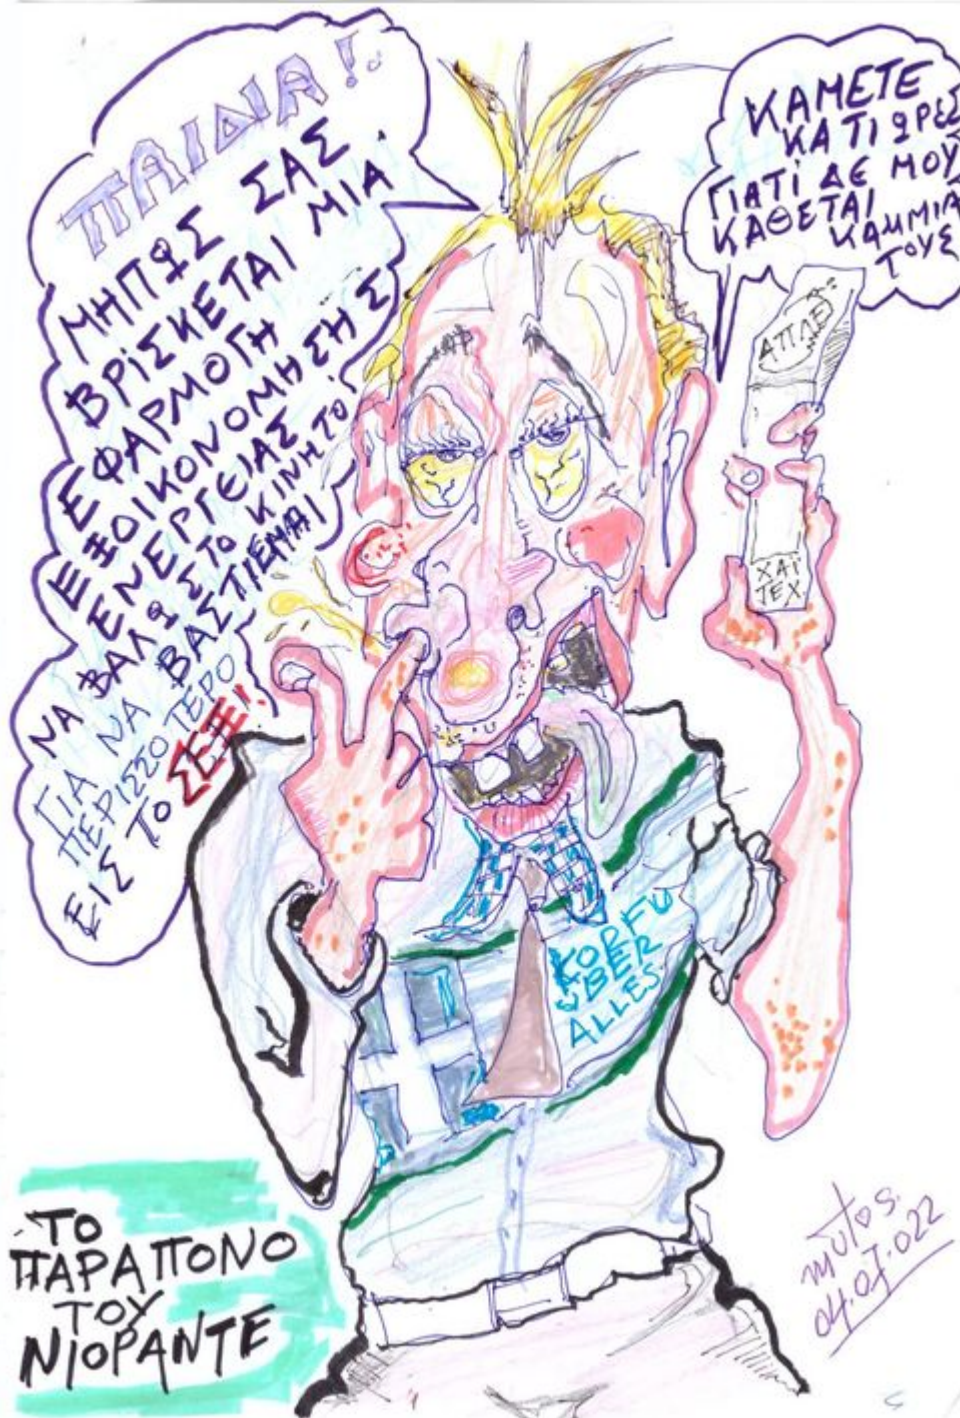 ΠΑΙΔΙΑ!
ΜΗΠΩΣ ΣΑΣ
ΒΡΙΣΚΕΤΑΙ ΜΙΑ
ΕΦΑΡΜΟΓΗ
ΕΞΟΙΚΟΝΟΜΗΣΗΣ
ΕΝΕΡΓΕΙΑΣ
ΝΑ ΒΑΛΩ ΣΤΟ ΚΙΝΗΤΟ
ΓΙΑ ΝΑ ΒΑΣΤΙΕΜΑΙ
ΠΕΡΙΣΣΟΤΕΡΟ
ΕΙΣ ΤΟ ΣΕΞ!
ΚΑΜΕΤΕ
ΚΑΤΙ ΩΡΕΣ
ΓΙΑΤΙ ΔΕ ΜΟΥ
ΚΑΘΕΤΑΙ ΚΑΜΜΙΑ
ΤΟΥΣ
ΧΑΪ
ΤΕΧ
KORFU
ÜBER
ALLES
ΤΟ
ΠΑΡΑΠΟΝΟ
ΤΟΥ
ΝΙΟΡΑΝΤΕ
04.07.022